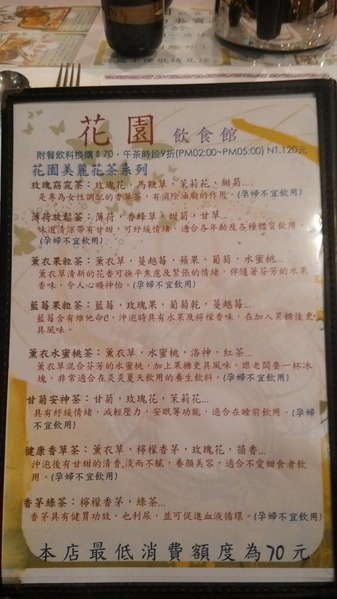 花園 飲食館
附餐飲料換購$70，午茶時段9折(PM02:00~PM05:00) NT.120元
花園美麗花茶系列
玫瑰窈窕茶：玫瑰花，馬鞭草，茉莉花，甜菊...
是專為女性調配的香草茶，有消除油膩的作用。(孕婦不宜飲用)
薄荷放鬆茶：薄荷，香蜂草，甜菊，甘草...
味道清涼帶有甘甜，可紓緩情緒，適合各年齡及各種體質飲用。
(孕婦不宜飲用)
薰衣果粒茶：薰衣草，蔓越莓，蘋果，葡萄，水蜜...
薰衣草清新的花香可撫平焦慮及緊張的情緒，伴隨著芬芳的水果
香味，令人心曠神怡。(孕婦不宜飲用)
藍莓果粒茶：藍莓，玫瑰果，葡萄乾，蔓越莓...
藍莓含有維他命C，沖泡時具有水果及檸檬香味，在加入果糖後更
具風味。
薰衣水蜜桃茶：薰衣草，水蜜桃，洛神，紅茶...
薰衣草混合芬芳的水蜜桃，加上果糖更具風味，跟老闆要一杯冰
塊，非常適合在炎炎夏天飲用的養生飲料。(孕婦不宜飲用)
甘菊安神茶：甘菊，玫瑰花，茉莉花...
具有紓緩情緒，減輕壓力，安眠等功能，適合在睡前飲用。(孕婦
不宜飲用)
健康香草茶：薰衣草，檸檬香茅，玫瑰花，茴香...
沖泡後有甘甜的清香,淡而不膩，養顏美容，適合不愛甜食者飲
用。(孕婦不宜飲用)
香茅綠茶：檸檬香茅，綠茶...
香茅具有健胃功效，也利尿，並可促進血液循環。(孕婦不宜飲用)
本店最低消費額度為70元